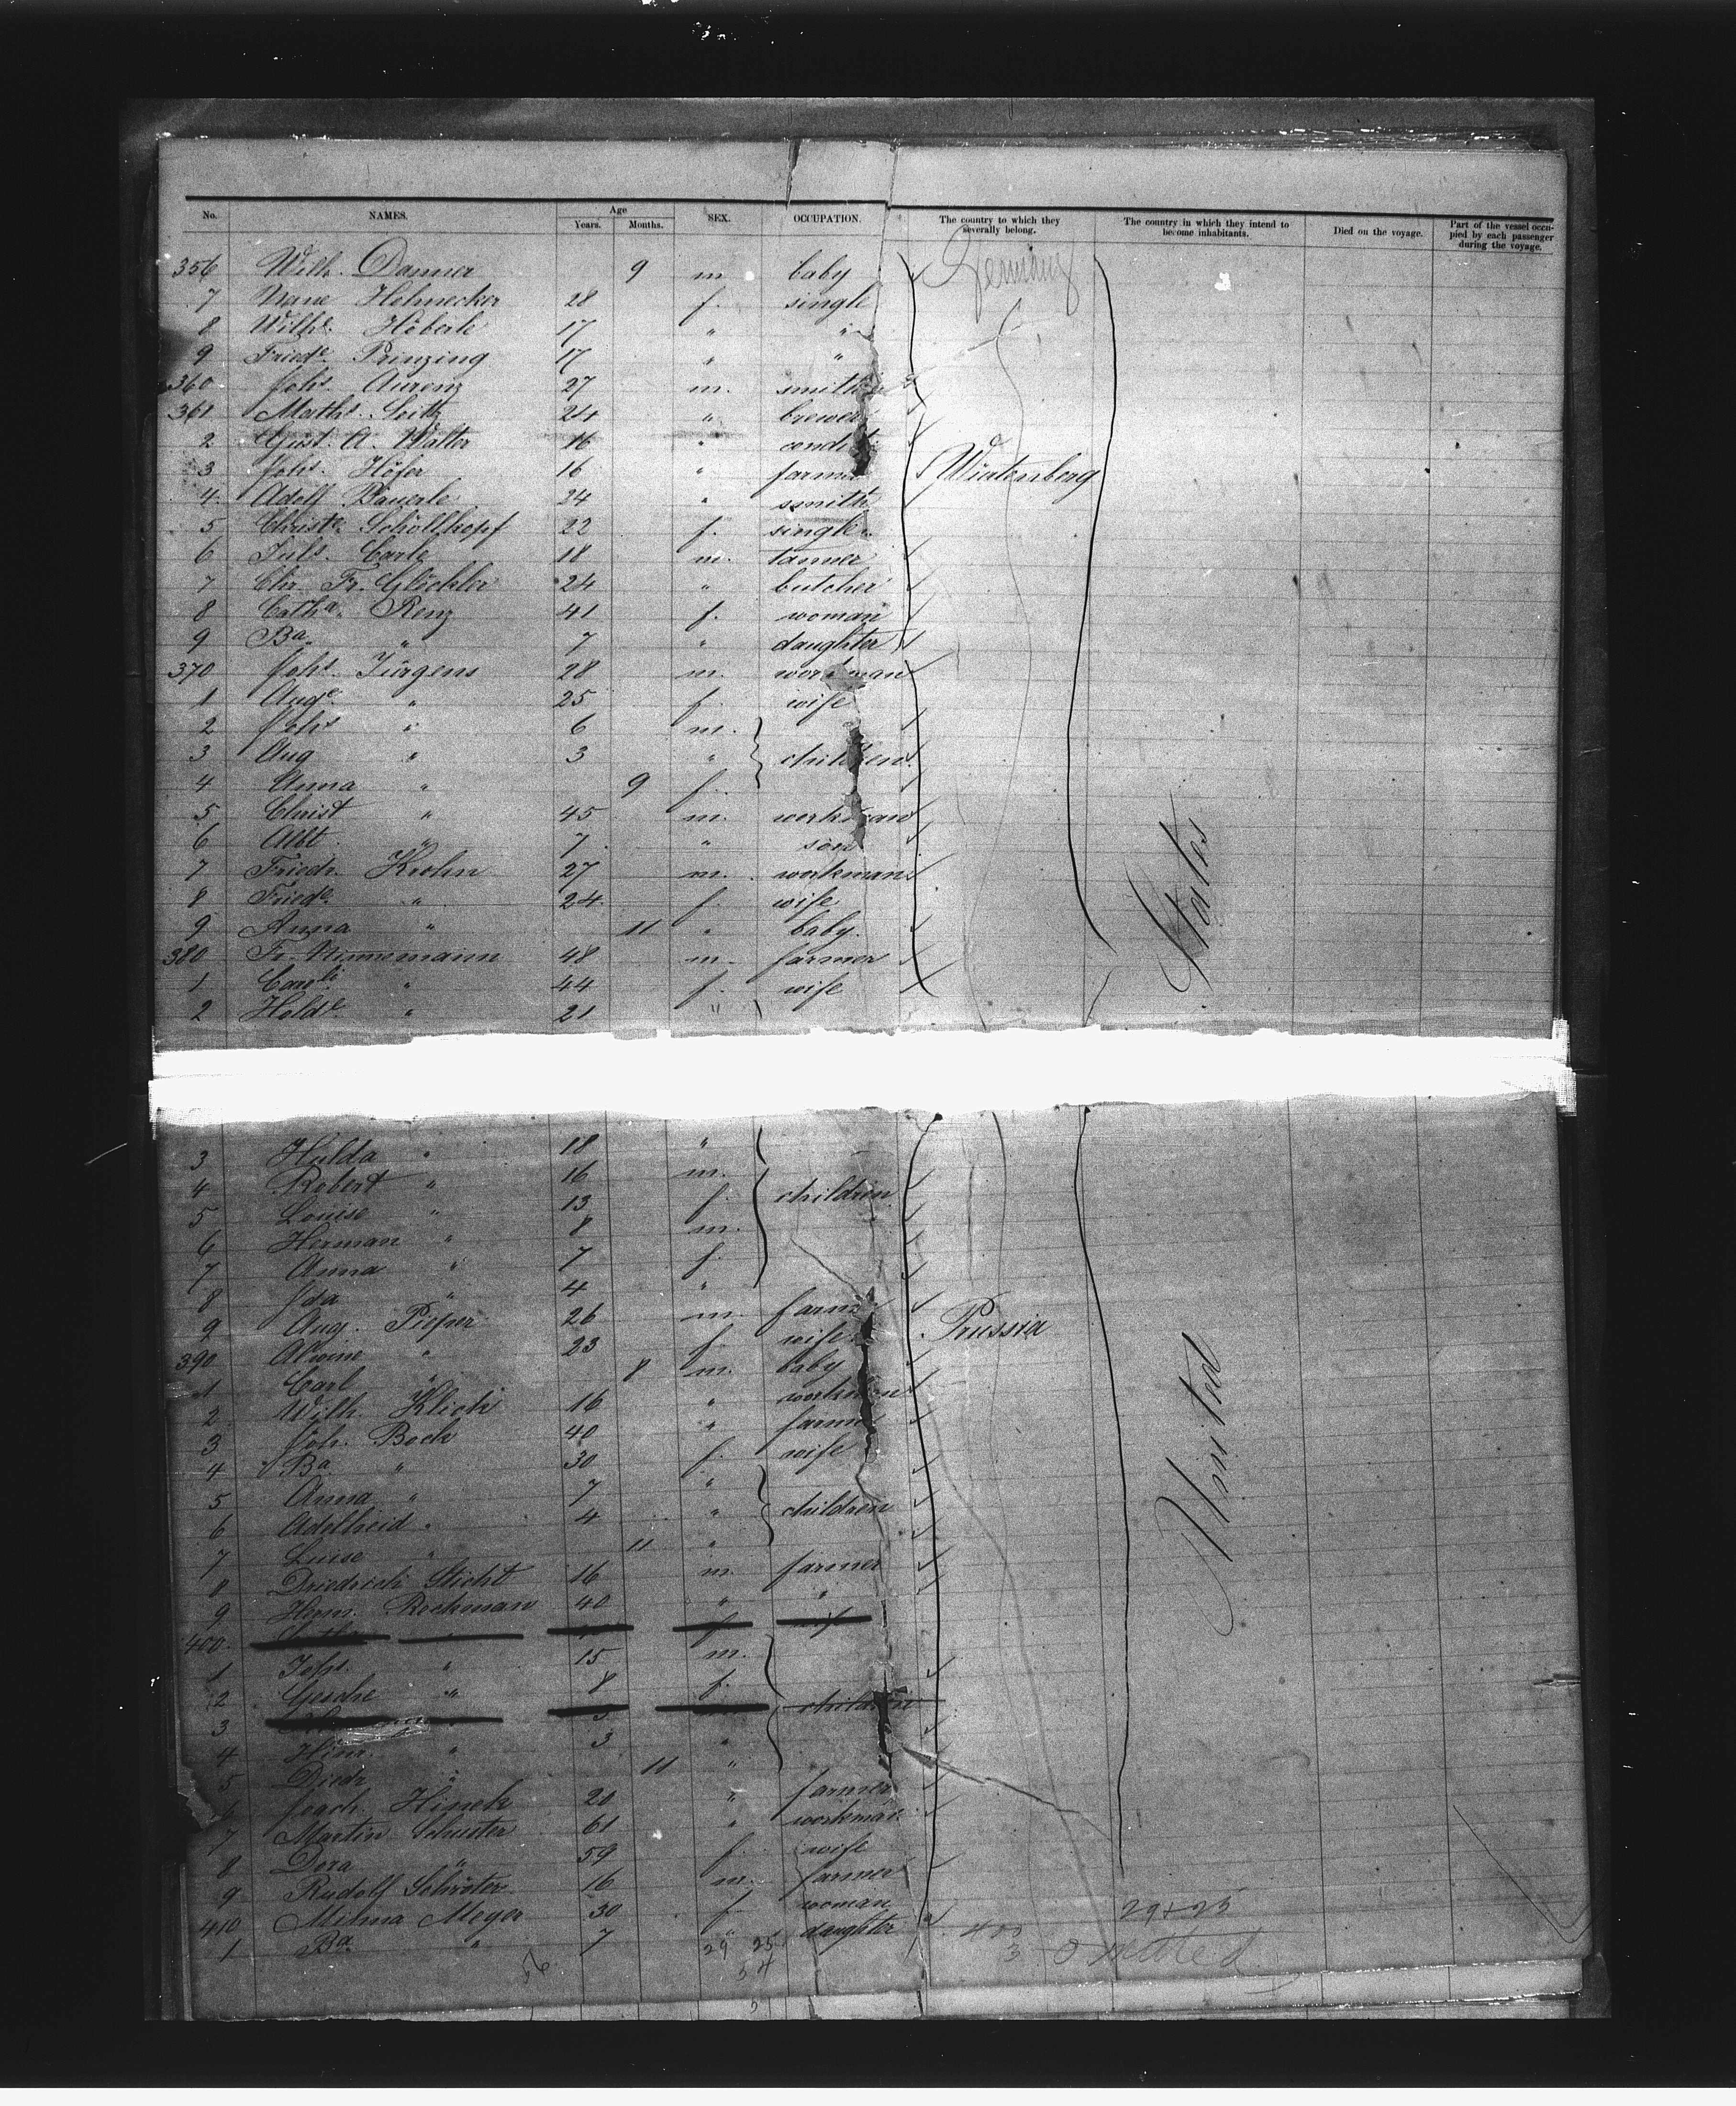 No. NAMES. Age Years. Months. SEX. OCCUPATION. The country to which they severally belong. The country in which they intend to become inhabitants. Died on the voyage. Part of the vessel occupied by each passenger during the voyage.
Germany
356 Wilh. Danner 9 m baby
7 Hohnecker 28 f. single
8 Wilhe. Häberle 17 " "
9 Friede. Prinzing 17 " "
360 Johs. Aurenz 27 m. smith
361 Maths. Seitz 24 " brewer
2 Gust. A. Walter 16 "
3 Johs. Höfer 16 " farmer Würtenberg
4 Adolf Bäuerle 24 " smith
5 Christe. Schöllkopf 22 f. single
6 Juls. Carle 18 m. tanner
7 Chr. Fr. Glöckler 24 " butcher
8 Catha. Renz 41 f. woman
9 Ba. " 7 " daughter
370 Johs. Jürgens 28 m. workman
1 Auge. " 25 f. wife
2 Johs " 6 m.
3 Aug " 3 " children
4 Anna " 9 f.
5 Christ " 45 m. workman
6 Albt. " 7 " son
7 Friedr. Krohn 27 m. workman
8 Friede. " 24 f. wife
9 Anna " 11 " baby.
380 Fr. Nünnemann 48 m. farmer
1 " 44 f. wife
2 " 21 "
3 Hulda " 18 "
4 Robert " 16 m.
5 Louise " 13 f. children
6 Herman " 8 m.
7 Anna " 7 f.
8 Ida " 4 "
9 Aug. Pieper 26 m. farm Prussia
390 Alwine " 23 f. wife
1 Carl " 8 m. baby
2 Wilh. Klick 16 " workman
3 Joh. Bock 40 " farmer
4 Ba " 30 f. wife
5 Anna " 7 "
6 Adelheid " 4 " children
7 Luise " 11 "
8 Driedrich Sticht 16 m. farmer
9 Herm. Rockman 40 " "
400
1 Johs. " 15 m.
2 Gesche " 8 f.
3 children
4 Hinr. " 3 "
5 Diedr " 11 "
6 Joach. Hinck 20 " farmer
7 Martin Schuster 61 " workman
8 Dora " 59 f. wife
9 Rudolf Schröter 16 m. farmer
410 Milma Meyer 30 f. woman
1 Ba " 7 " daughter
United States
29+25
29 25
54
56
3